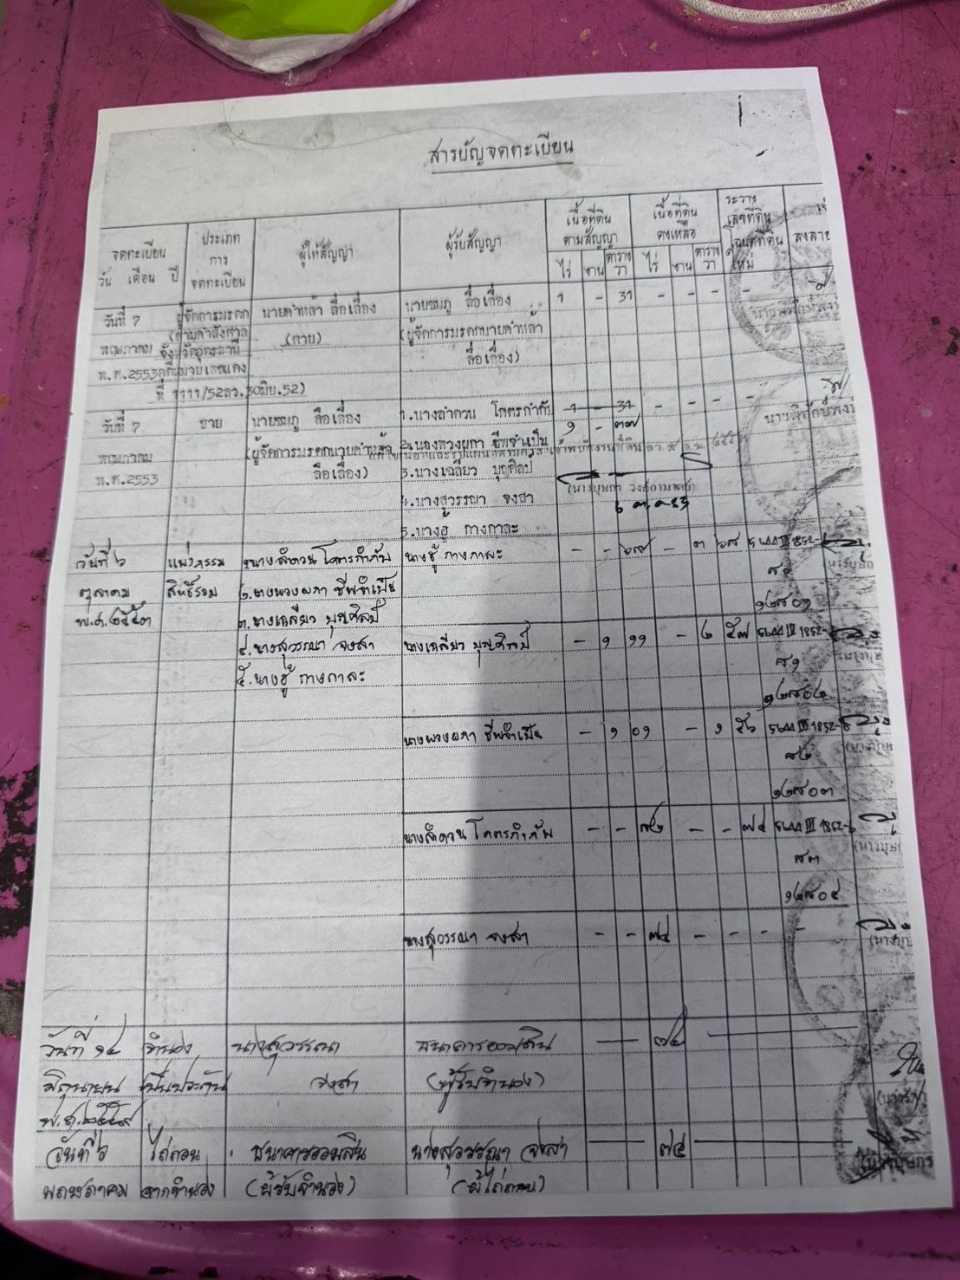 สารบัญจดทะเบียน
จดทะเบียน
วัน เดือน ปี
ประเภท
การ
จดทะเบียน
ผู้ให้สัญญา
ผู้รับสัญญา
เนื้อที่ดิน
ตามสัญญา
ไร่ งาน ตาราง
วา
เนื้อที่ดิน
คงเหลือ
ไร่ งาน ตาราง
วา
ระวาง
เลขที่ดิน
โฉนดที่ดิน
ใหม่
วันที่ 7 ผู้จัดการมรดก นายคำหล้า ลือเลื่อง นายชมภู ลือเลื่อง 1 - 31 - - - -
(ตามคำสั่งศาล (ตาย) (ผู้จัดการมรดกนายคำหล้า
พฤษภาคม จังหวัดอุดรธานี ลือเลื่อง)
พ.ศ.2553 คดีหมายเลขแดง
ที่ 1111/52ลว.30มิย.52)
วันที่ 7 ขาย นายชมภู ลือเลื่อง 1.นางลำดวน โคตรกำกับ 1 - 31 - - - -
๑ - ๓๗
พฤษภาคม (ผู้จัดการมรดกนายคำหล้า 2.นางพวงผกา ชีพจำเป็น
พ.ศ.2553 ลือเลื่อง) 3.นางเฉลียว บุญศิลป์
4.นางสุวรรณา จงสา
5.นางฮู้ กางกาละ
วันที่ ๖ แบ่งกรรม ๑.นางลำดวน โคตรกำกับ นางฮู้ กางกาละ
ตุลาคม สิทธิ์รวม ๒.นางพวงผกา ชีพจำเป็น
พ.ศ.๒๕๕๓ ๓.นางเฉลียว บุญศิลป์
๑๒๘๐๑
๔.นางสุวรรณา จงสา นางเฉลียว บุญศิลป์ - ๑ ๑๑ - ๒ ๕๗
๕.นางฮู้ กางกาละ
๑๒๘๐๒
นางพวงผกา ชีพจำเป็น - ๑ ๐๑ - ๑ ๕๖
๑๒๘๐๓
นางลำดวน โคตรกำกับ - - ๘๒ - - ๗๔
๑๒๘๐๔
นางสุวรรณา จงสา - - ๗๔ - - - -
วันที่ ๑๔ จำนอง นางสุวรรณา ธนาคารออมสิน ๗๔
มิถุนายน เป็นประกัน จงสา (ผู้รับจำนอง)
วันที่ ๖ ไถ่ถอน ธนาคารออมสิน นางสุวรรณา จงสา ๗๔
พฤษภาคม จากจำนอง (ผู้รับจำนอง) (ผู้ไถ่ถอน)